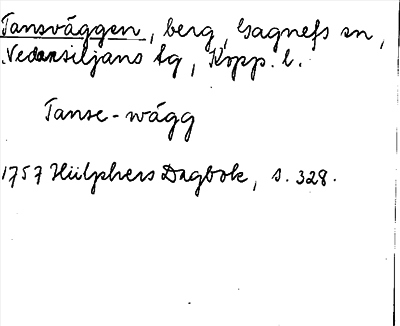 Tansväggen, berg, Gagnefs sn,
Nedansiljans fg, Kopp. l.
Tanse-wägg
1757 Hülphers Dagbok, s. 328.